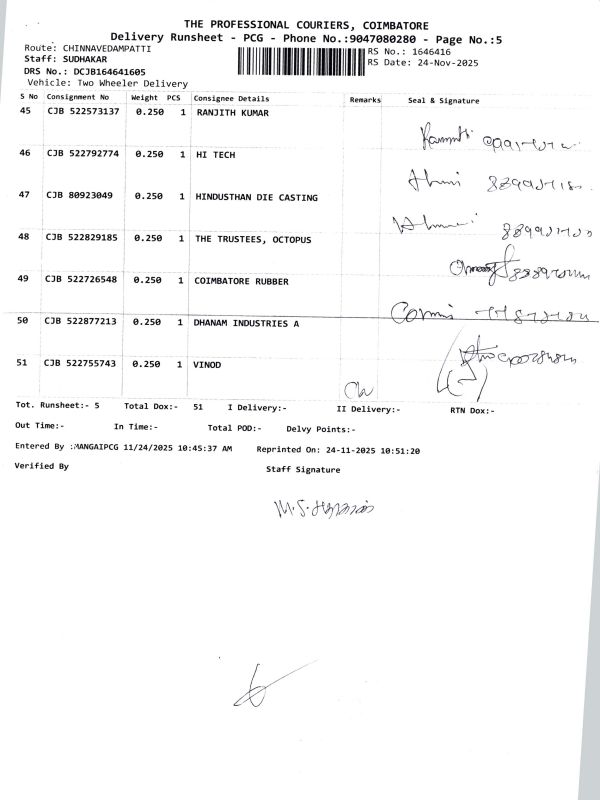 THE PROFESSIONAL COURIERS, COIMBATORE
Delivery Runsheet - PCG - Phone No.:9047080280 - Page No.:5
Route: CHINNAVEDAMPATTI RS No.: 1646416
Staff: SUDHAKAR RS Date: 24-Nov-2025
DRS No.: DCJB164641605
Vehicle: Two Wheeler Delivery
S No Consignment No Weight PCS Consignee Details Remarks Seal & Signature
45 CJB 522573137 0.250 1 RANJITH KUMAR
46 CJB 522792774 0.250 1 HI TECH
47 CJB 80923049 0.250 1 HINDUSTHAN DIE CASTING
48 CJB 522829185 0.250 1 THE TRUSTEES, OCTOPUS
49 CJB 522726548 0.250 1 COIMBATORE RUBBER
50 CJB 522877213 0.250 1 DHANAM INDUSTRIES A
51 CJB 522755743 0.250 1 VINOD
Tot. Runsheet:- 5 Total Dox:- 51 I Delivery:- II Delivery:- RTN Dox:-
Out Time:- In Time:- Total POD:- Delvy Points:-
Entered By :MANGAIPCG 11/24/2025 10:45:37 AM Reprinted On: 24-11-2025 10:51:20
Verified By Staff Signature